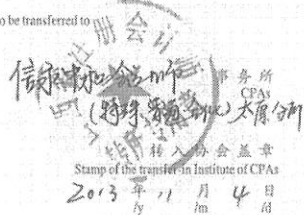 to be transferred to
信永中和会计师 事务所
CPAs
(特殊普通合伙) 太原分所
转入协会盖章
Stamp of the transfer-in Institute of CPAs
2013年11月4日
/y /m /d